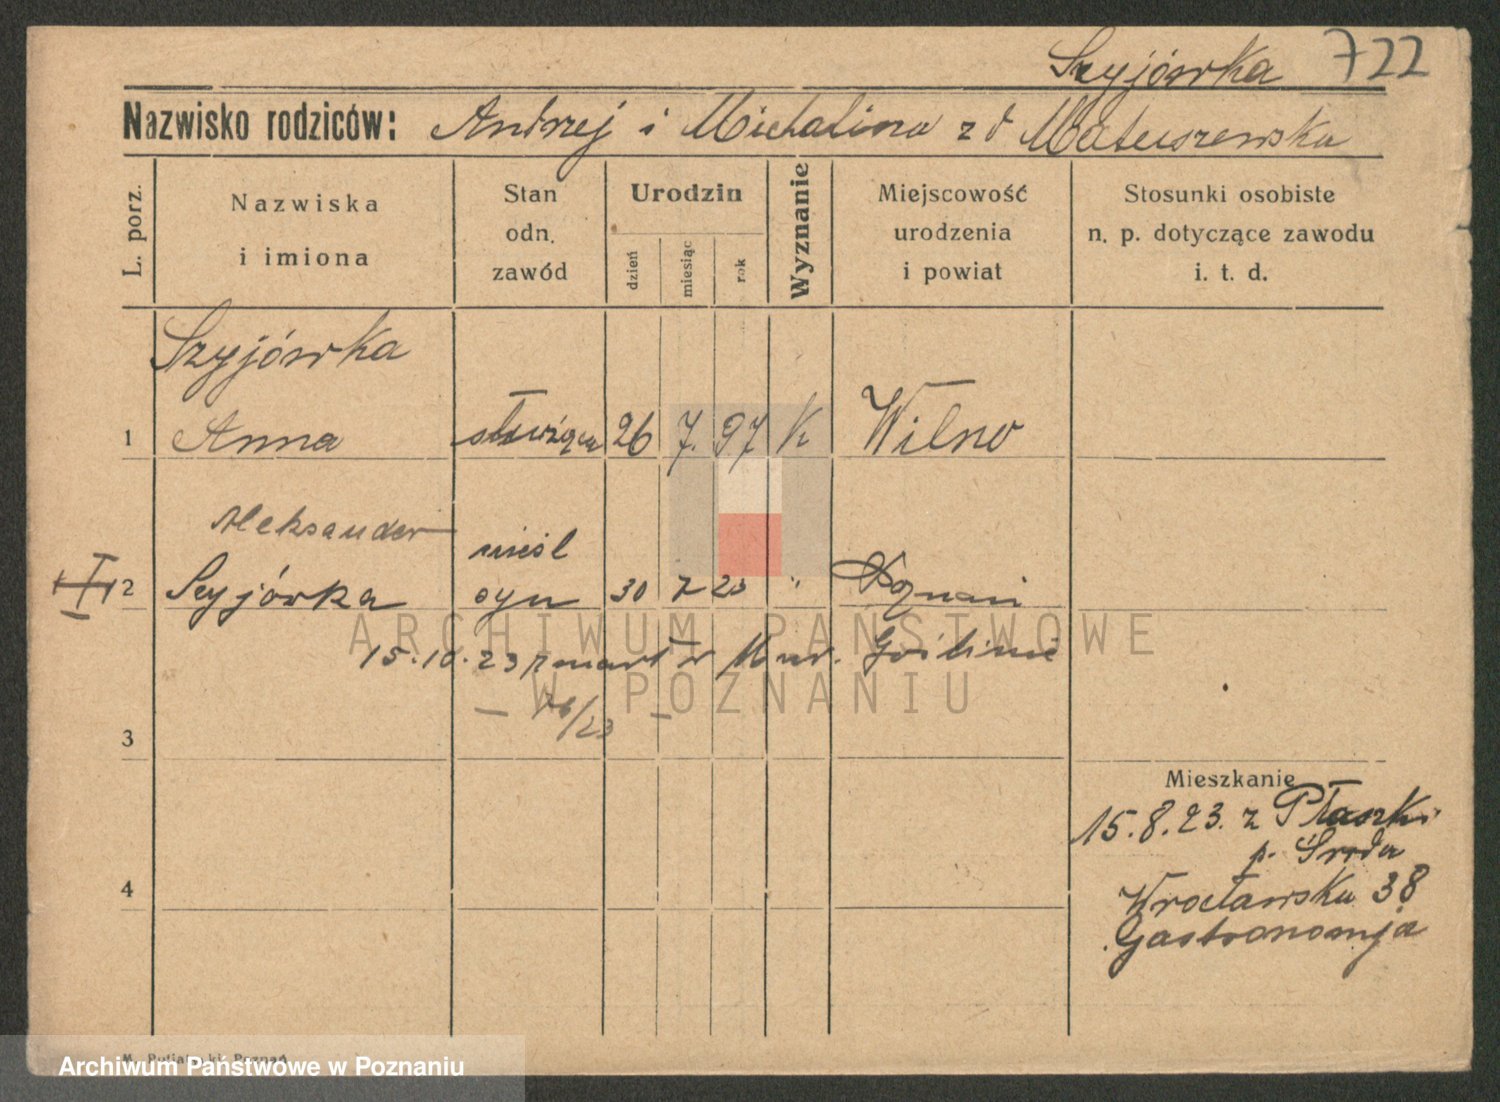 Szyjówka 722
Nazwisko rodziców: Andrzej i Michalina z d Matuszewska
L. porz.
Nazwiska
i imiona
Stan
odn.
zawód
Urodzin
dzień
miesiąc
rok
Wyznanie
Miejscowość
urodzenia
i powiat
Stosunki osobiste
n. p. dotyczące zawodu
i. t. d.
Szyjówka
1 Anna służąca 26 7. 97 K Wilno
Aleksander nieśl
2 Szyjówka syn 30 7 23 " Poznań
15.10.23 zmarł w Mur. Goślinie
— 76/23 —
3
Mieszkanie
15.8.23. z Płaszki
p. Środa
4
Wrocławska 38
Gastronomja
ARCHIWUM PAŃSTWOWE
W POZNANIU
M. Putiatycki, Poznań
Archiwum Państwowe w Poznaniu